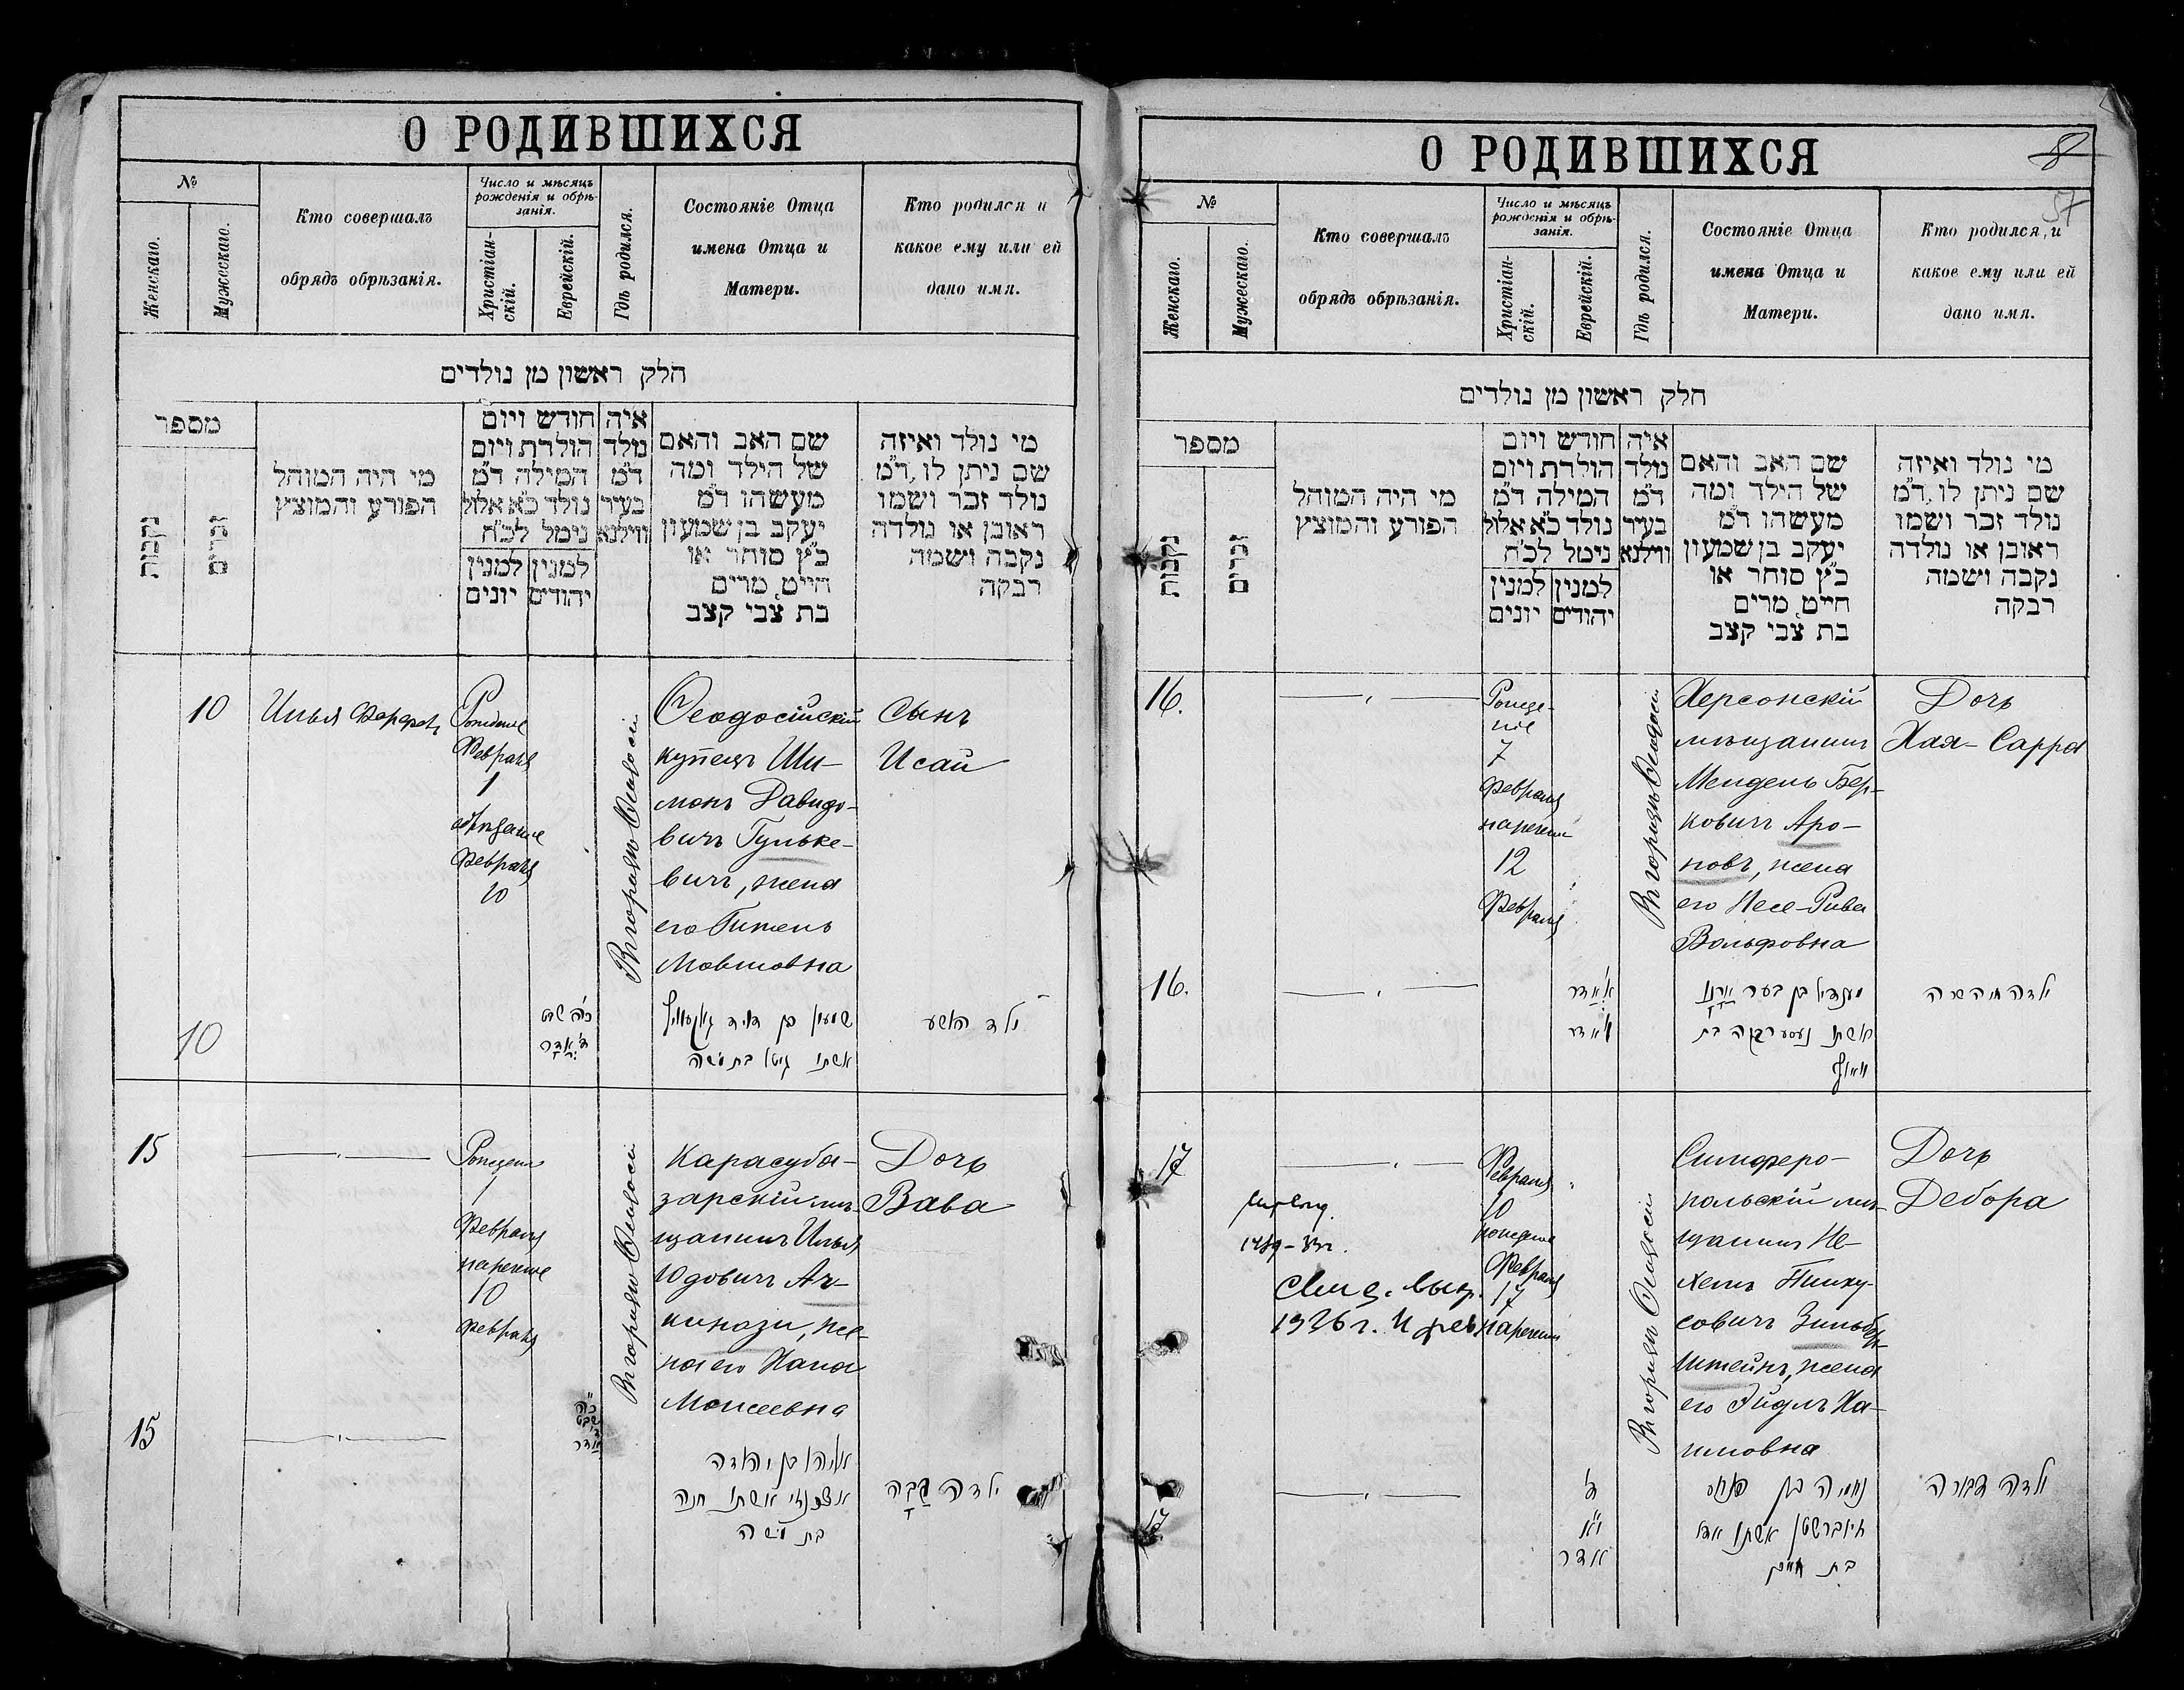 О РОДИВШИХСЯ
№
Женскаго.
Мужескаго.
Кто совершалъ
обрядъ обрѣзанія.
Число и мѣсяцъ
рожденія и обрѣ-
занія.
Христіан-
скій.
Еврейскій.
Гдѣ родился.
Состояніе Отца
имена Отца и
Матери.
Кто родился и
какое ему или ей
дано имя.
חלק ראשון מן נולדים
מספר
נקבות
זכרים
מי היה המוהל
הפורע והמוצץ
חודש ויום
הולדת ויום
המילה ד״מ
נולד כ״א אלול
נימול לכ״ח
למנין
יונים
למנין
יהודים
איה
נולד
ד״מ
בעיר
ווילנא
שם האב והאם
של הילד ומה
מעשהו ד״מ
יעקב בן שמעון
כ״ץ סוחר או
חייט, מרים
בת צבי קצב
מי נולד ואיזה
שם ניתן לו, ד״מ
נולד זכר ושמו
ראובן או נולדה
נקבה ושמה
רבקה
10
Февраля
1
Февраля
10
Въ городѣ Ѳеодосіи
Ѳеодосійскій
купецъ Ши-
монъ Давидо-
вичъ Гульке-
вичъ, жена
его Гитель
Мовшовна
Сынъ
Исай
10
שמעון בן דוד
אשתו גיטל בת משה
ילד
15
1
Февраля
нареченіе
10
Февраля
Въ городѣ Ѳеодосіи
Карасуба-
зарскій мѣ-
щанинъ Илья
Юдовичъ Аш-
кинази, же-
на его Хана
Моисеевна
Дочь
Вава
15
אליהו בן יהודה
אשכנזי אשתו חנה
בת משה
ילדה
О РОДИВШИХСЯ
8
57
№
Женскаго.
Мужескаго.
Кто совершалъ
обрядъ обрѣзанія.
Число и мѣсяцъ
рожденія и обрѣ-
занія.
Христіан-
скій.
Еврейскій.
Гдѣ родился.
Состояніе Отца
имена Отца и
Матери.
Кто родился, и
какое ему или ей
дано имя.
חלק ראשון מן נולדים
מספר
נקבות
זכרים
מי היה המוהל
הפורע והמוצץ
חודש ויום
הולדת ויום
המילה ד״מ
נולד כ״א אלול
נימול לכ״ח
למנין
יונים
למנין
יהודים
איה
נולד
ד״מ
בעיר
ווילנא
שם האב והאם
של הילד ומה
מעשהו ד״מ
יעקב בן שמעון
כ״ץ סוחר או
חייט, מרים
בת צבי קצב
מי נולד ואיזה
שם ניתן לו, ד״מ
נולד זכר ושמו
ראובן או נולדה
נקבה ושמה
רבקה
16.
Рожде-
ніе
7
Февраля
нареченіе
12
Февраля
Въ городѣ Ѳеодосіи
Херсонскій
мѣщанинъ
Мендель Бер-
ковичъ Аро-
новъ, жена
его Несе-Рива
Вольфовна
Дочь
Хая-Сарра
16.
אדר
אדר
מענדיל בן בער
אשתו נעסע רבקה בת
וואלף
ילדה חיה שרה
17
Февраля
10
рожденіе
Февраля
17
нареченіе
1926 г.
Въ городѣ Ѳеодосіи
Симферо-
польскій мѣ-
щанинъ Не-
хемъ Пинху-
совичъ Зильбер-
штейнъ, жена
его Эйдль Ха-
имовна
Дочь
Дебора
17
אדר
נחמיה בן פנחס
זילברשטן אשתו אדל
בת חיים
ילדה דבורה